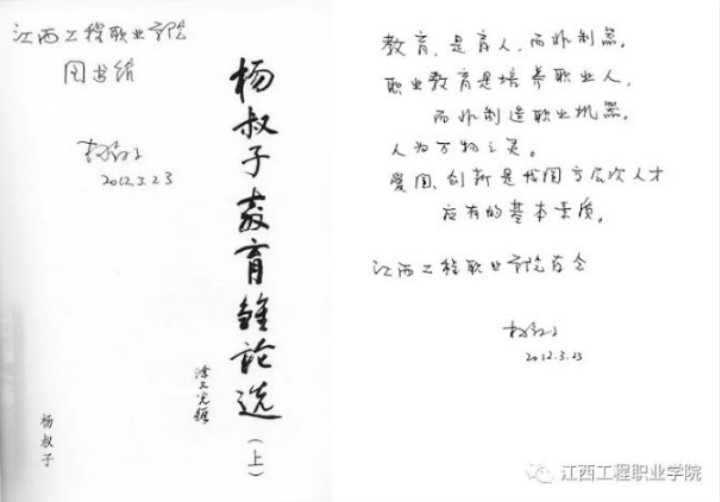 江西工程职业学院
图书馆
杨叔子
2012.3.23
杨叔子教育雏论选
(上)
杨叔子
教育,是育人,而非制器。
职业教育是培养职业人,
而非制造职业机器。
人为万物之灵。
爱国、创新是我国高层次人才
应有的基本素质。
江西工程职业学院存念
杨叔子
2012.3.23
江西工程职业学院